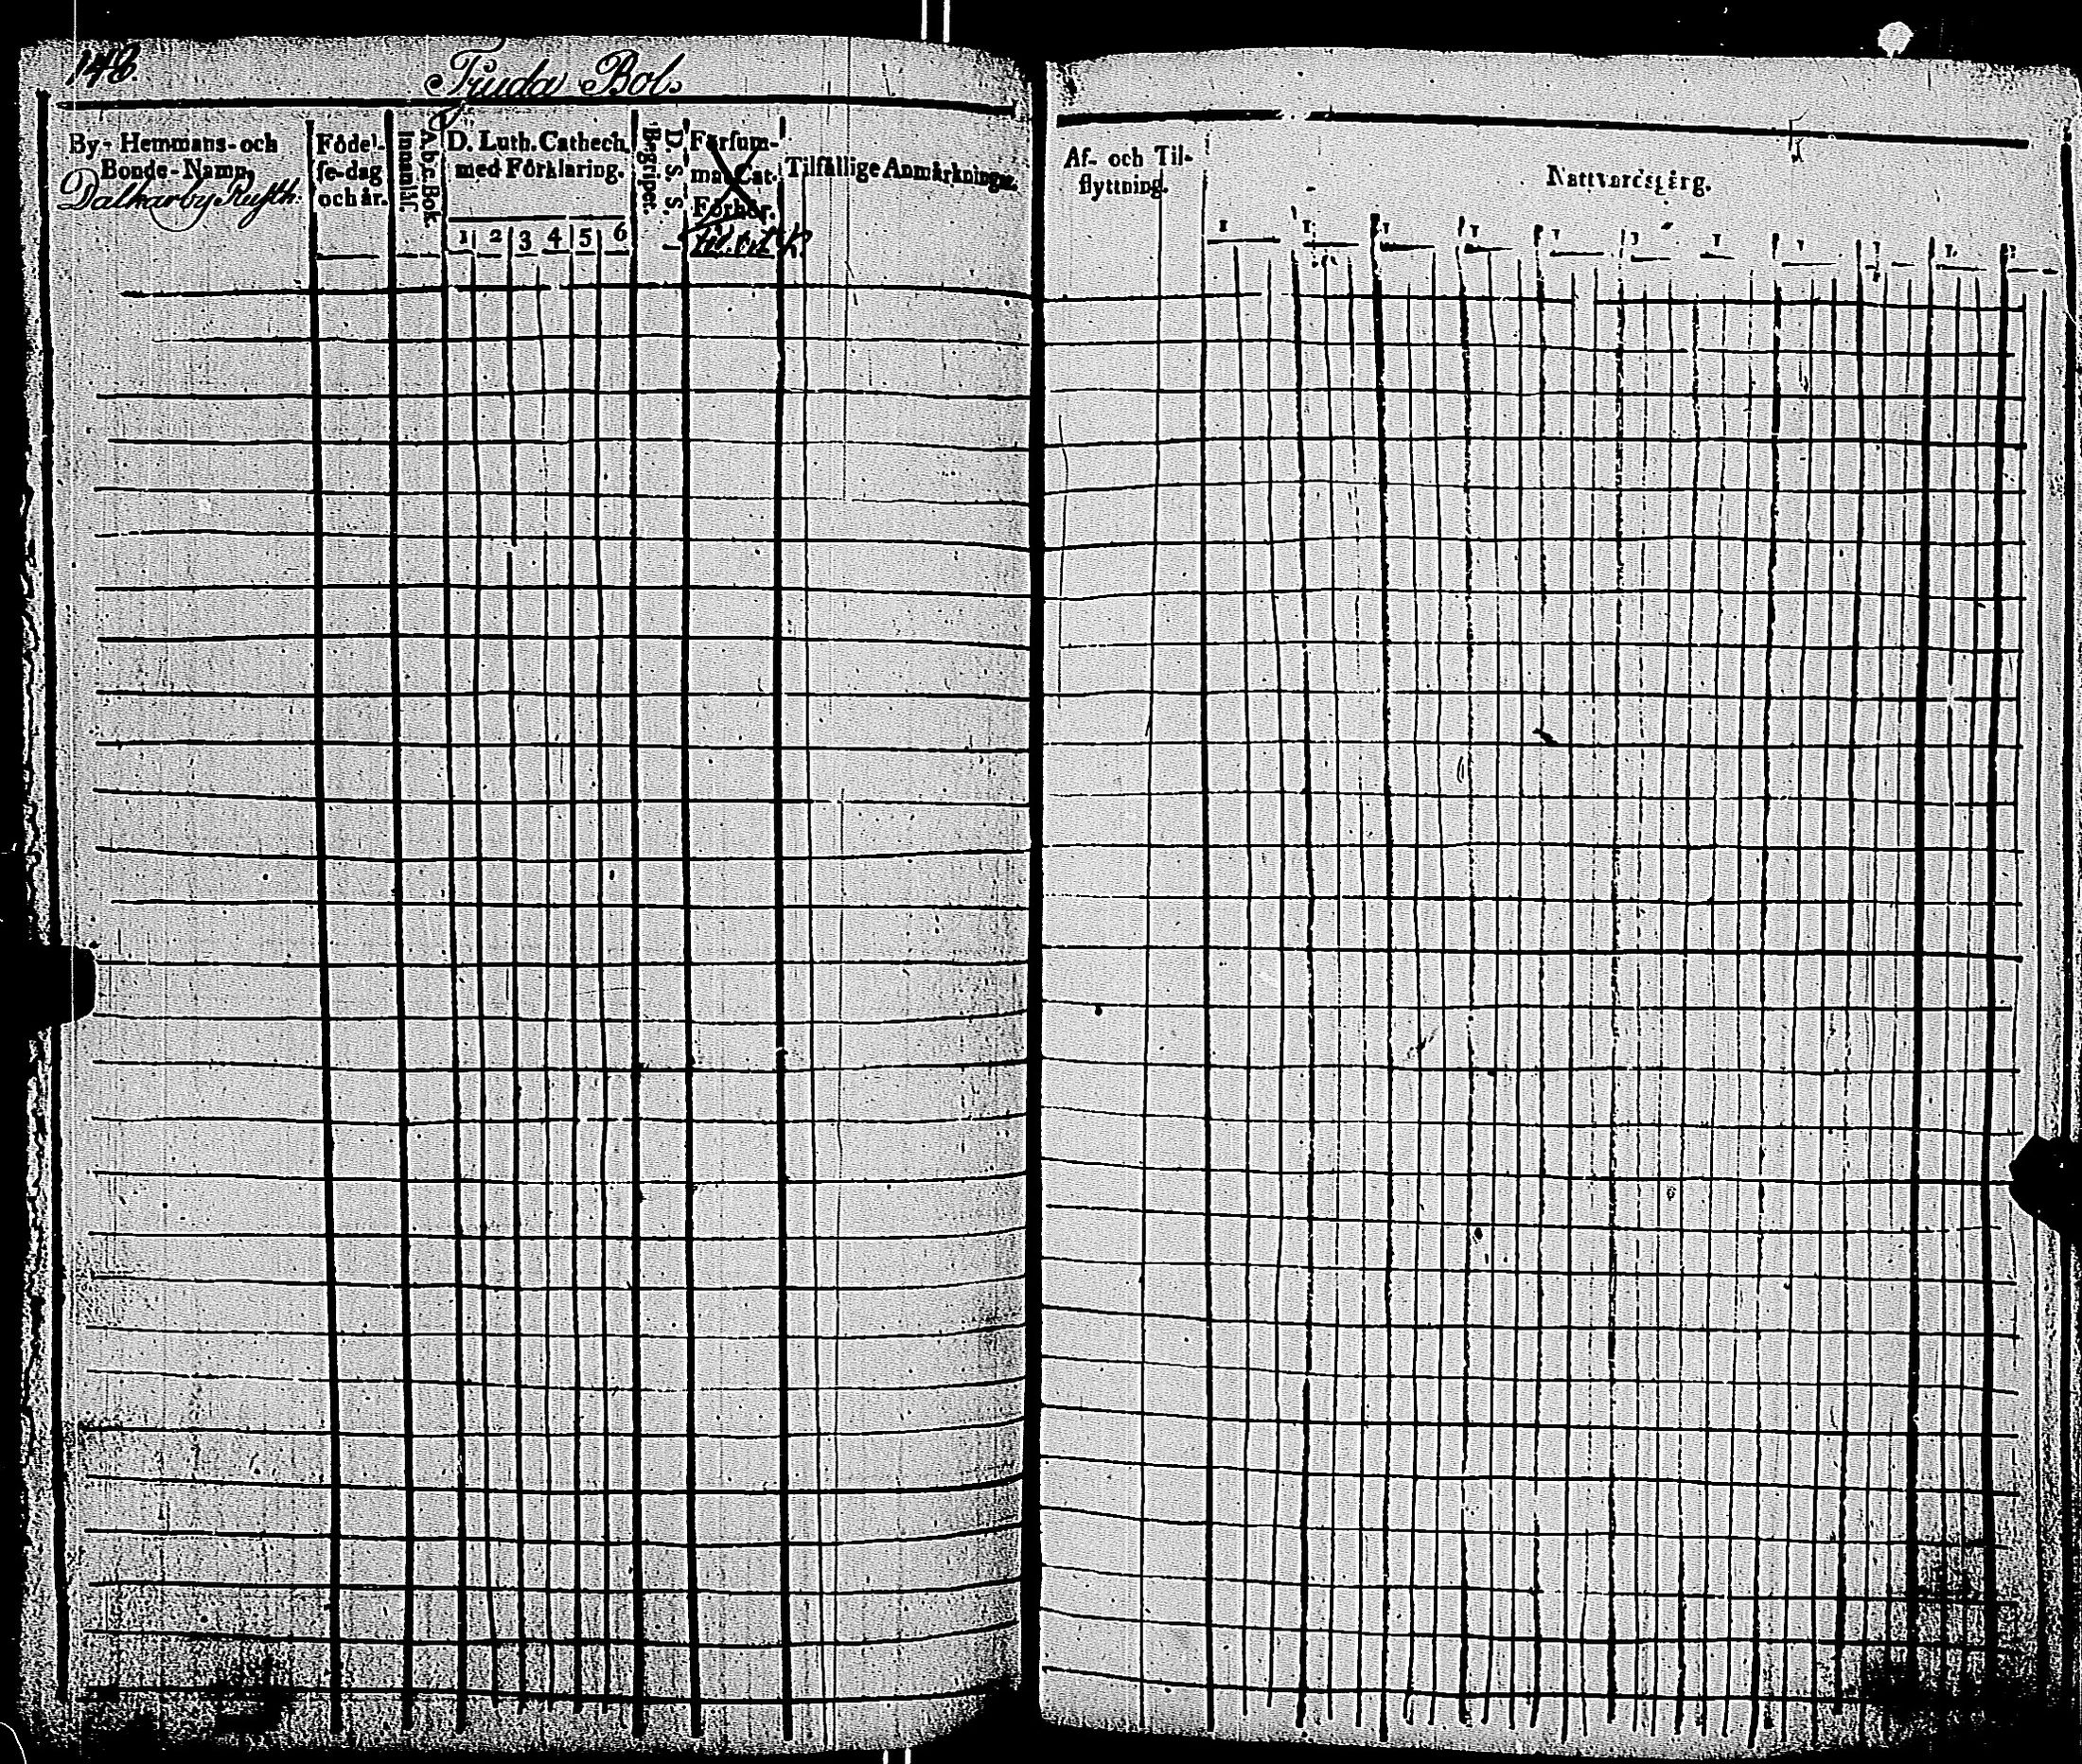 148.
Tjuda Bol.
By- Hemmans- och
Bonde-Namn,
Dalkarby Rusth:
Födel-
se-dag
och år.
Innanläs.
A.b.c. Bok.
D. Luth. Cathech.
med Förklaring.
1 2 3 4 5 6
Begripet.
D. S. S.
Försum-
mat Cat.
Förhör.
Tilfällige Anmärkningar.
Af- och Til-
flyttning.
Nattvardsgång.